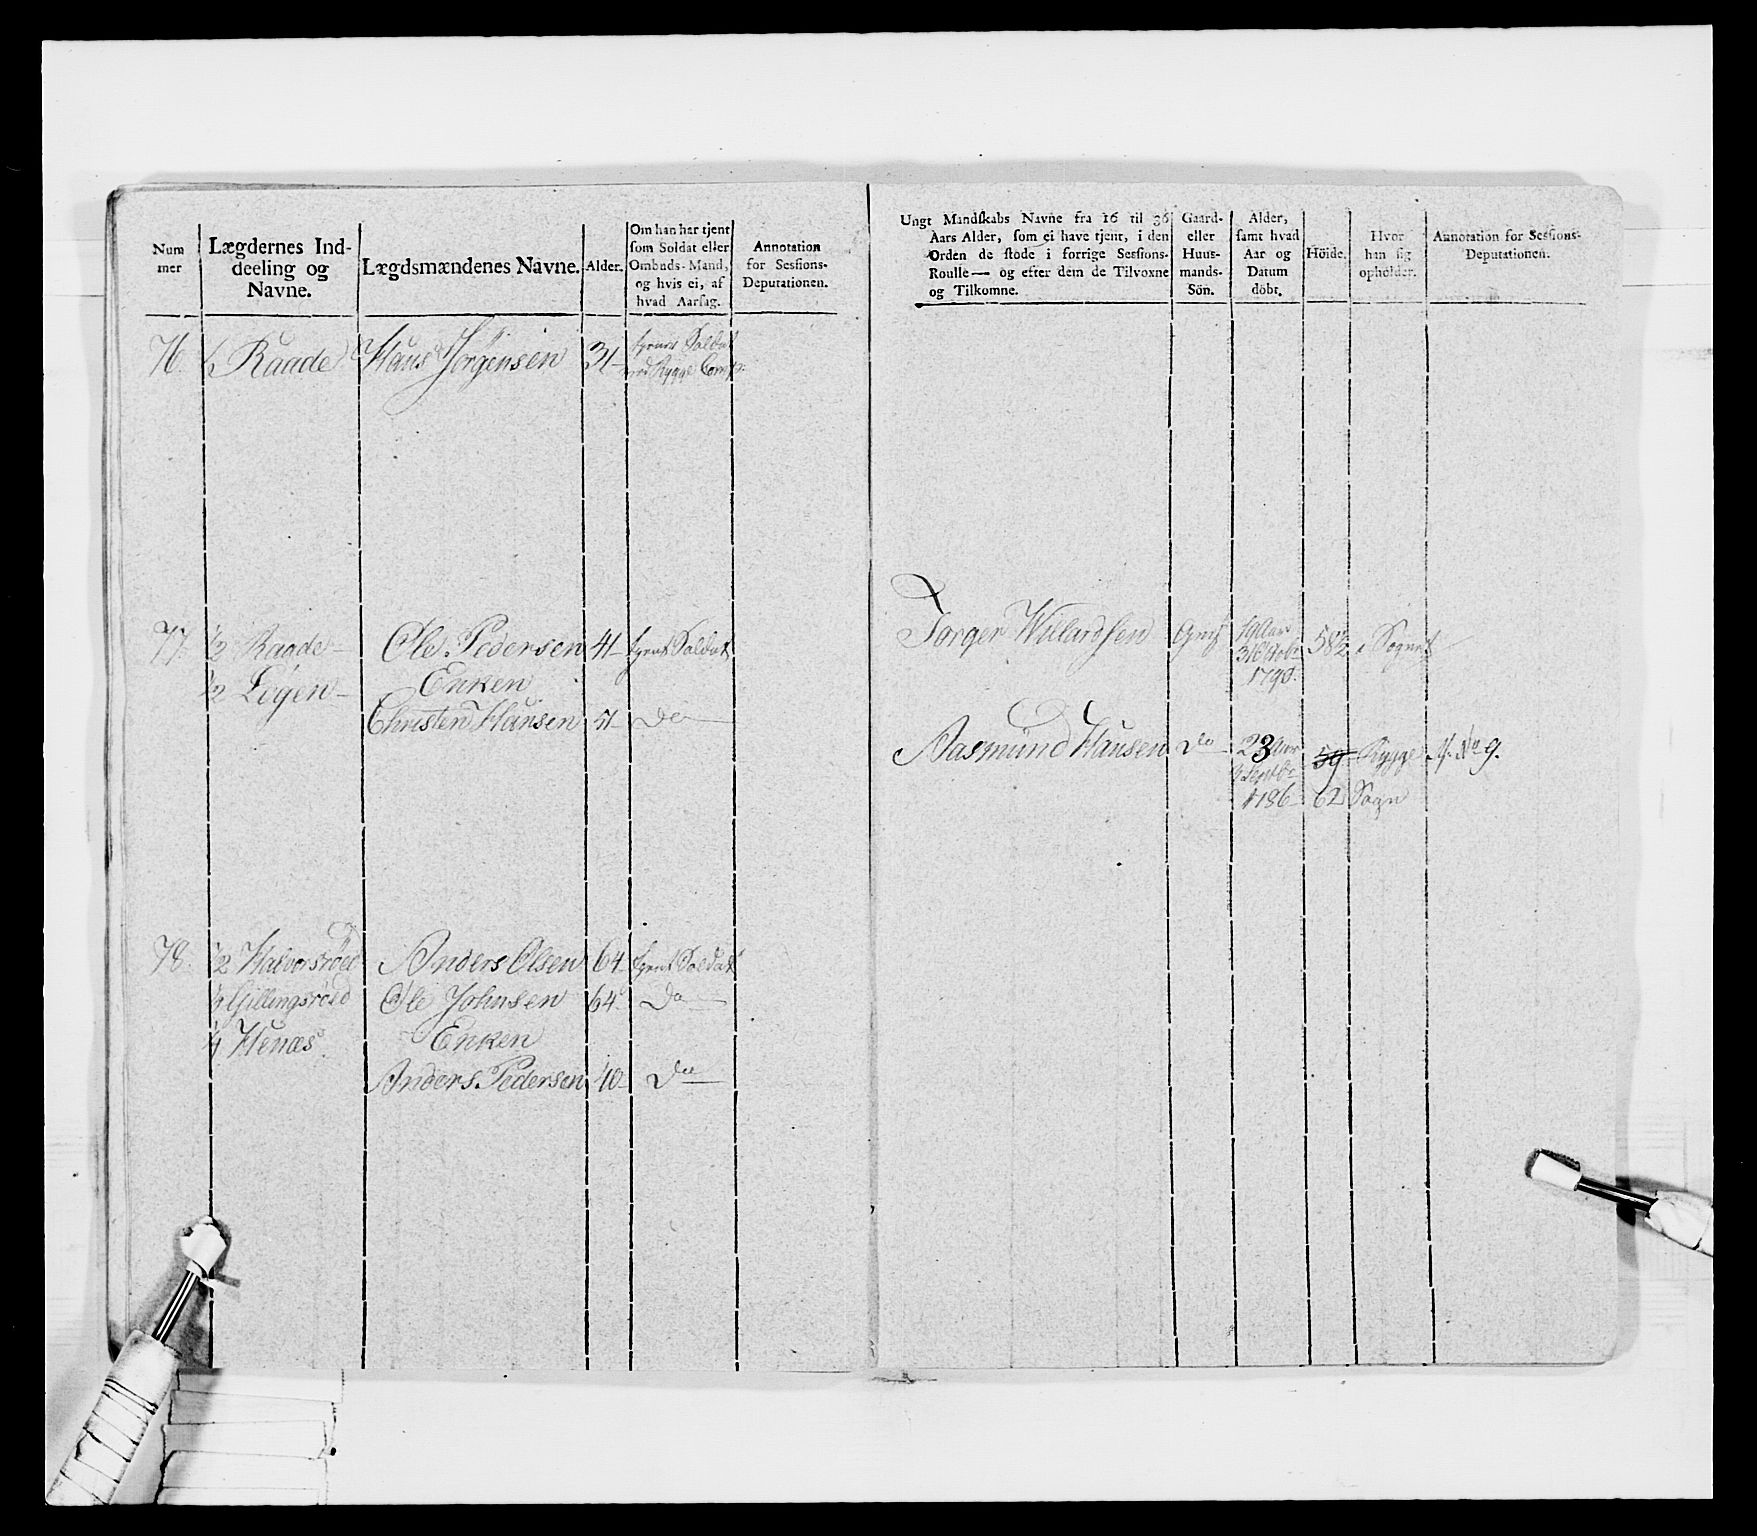 Num
mer
Lægdernes Ind-
deeling og
Navne.
Lægdsmændenes Navne.
Alder.
Om han har tjent
som Soldat eller
Ombuds-Mand,
og hvis ei, af
hvad Aarsag.
Annotation
for Sessions-
Deputationen.
76. Raade Hans Jörgensen 31 tjener Soldat
ved Rygge Comp.
77. 1/2 Raade Ole Pedersen 41 tjent Soldat
1/2 Löjen Enken
Christen Hansen 51 Do
78. 1/2 Halvorsröed Anders Olsen 64 tjent Soldat
1/4 Gillingsröed Ole Johnsen 64 Do
1/4 Henæs Enken
Anders Pedersen 40 Do
Ungt Mandskabs Navne fra 16 til 36
Aars Alder, som ei have tjent, i den
Orden de stode i forrige Sessions-
Roulle — og efter dem de Tilvoxne
og Tilkomne.
Gaard-
eller
Huus-
mands-
Sön.
Alder,
samt hvad
Aar og
Datum
döbt.
Höide.
Hvor
han sig
opholder.
Annotation for Sessions-
Deputationen.
Torger Willardsen 19 Aar 58 1/2 i Sognet
31 Octobr
1790
Aasmund Hansen Do 23 Aar 59 Rygge No 9.
Septbr
1786 62 Sogn